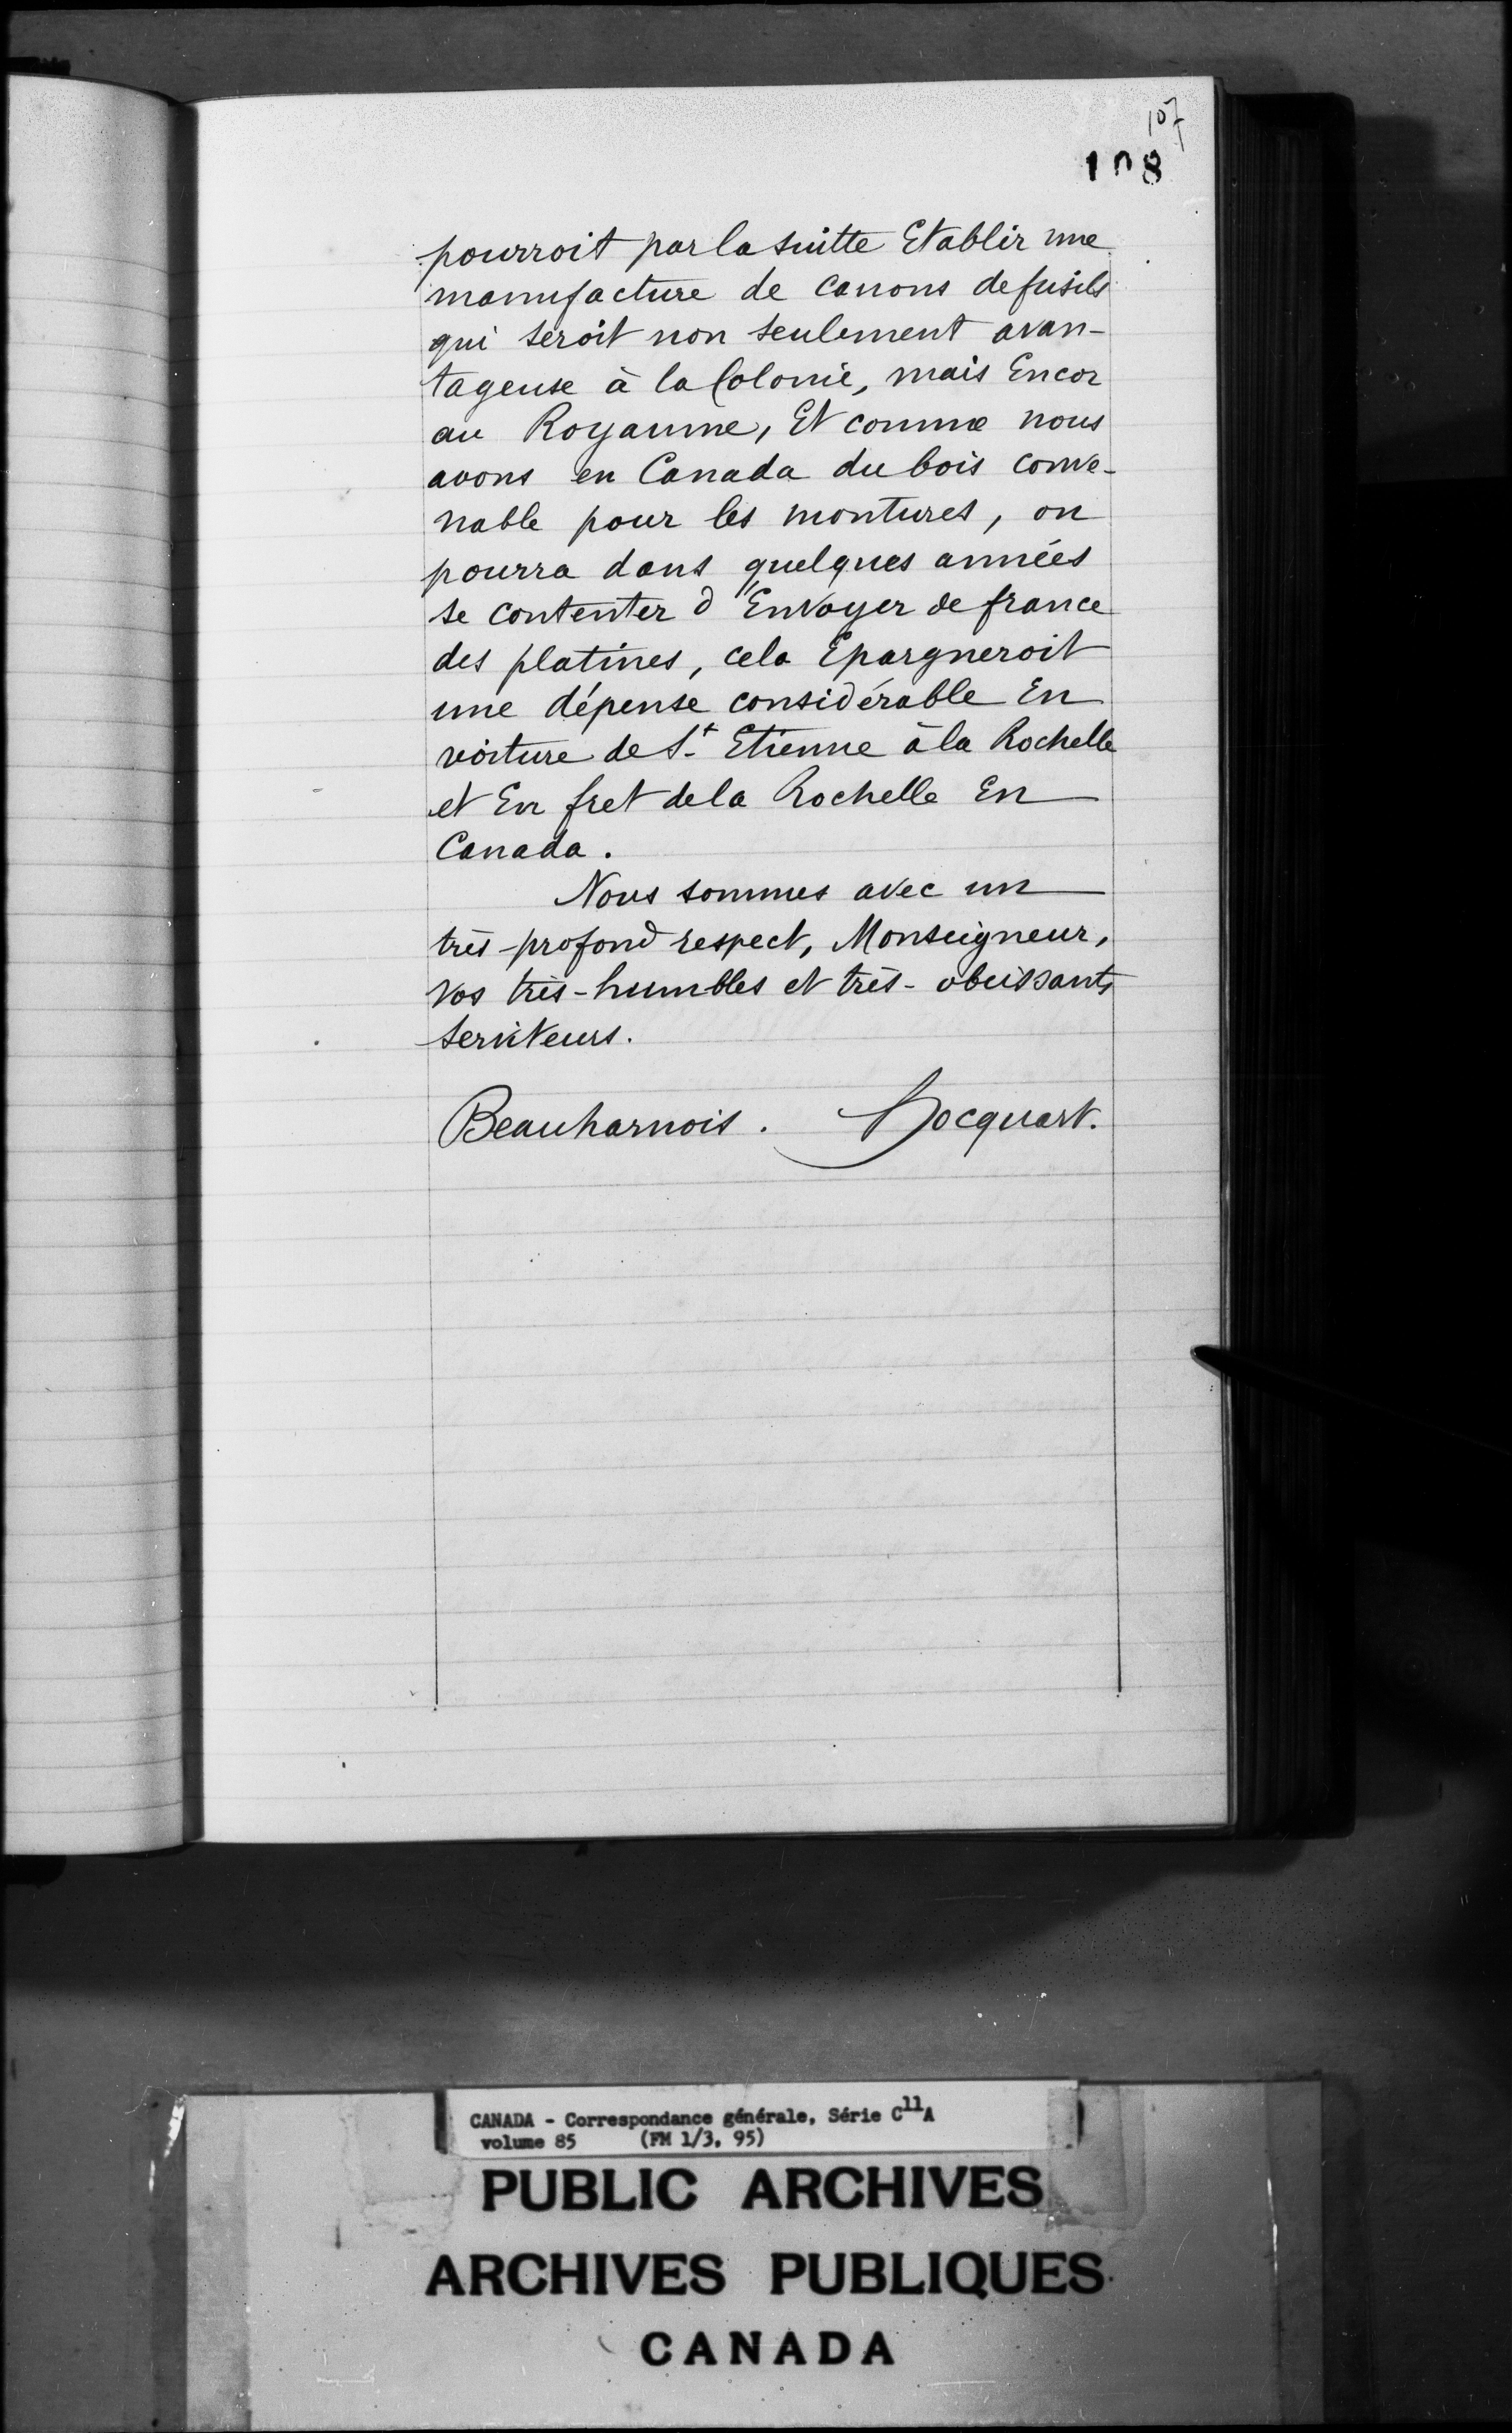 107
108
pourroit par la suitte Etablir une
manufacture de canons de fusils
qui seroit non seulement avan-
tageuse à la Colonie, mais Encor
au Royaume, Et comme nous
avons en Canada du bois conve-
nable pour les montures, on
pourra dans quelques années
se contenter d'Envoyer de france
des platines, cela Epargneroit
une dépense considérable En
voiture de St Etienne à la Rochelle
et En fret de la Rochelle En
Canada.
Nous sommes avec un
très-profond respect, Monseigneur,
vos très-humbles et très-obeissants
serviteurs.
Beauharnois. Hocquart.
CANADA - Correspondance générale, Série C11A
volume 85 (FM 1/3, 95)
PUBLIC ARCHIVES
ARCHIVES PUBLIQUES
CANADA